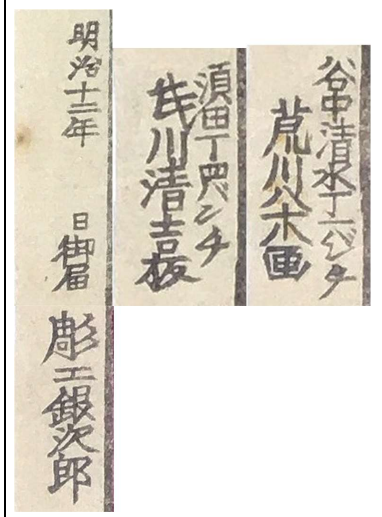 谷中清水丁一バンチ
荒川八十八画
須田丁四バンチ
武川清吉板
明治十二年 日御届
彫工銀次郎